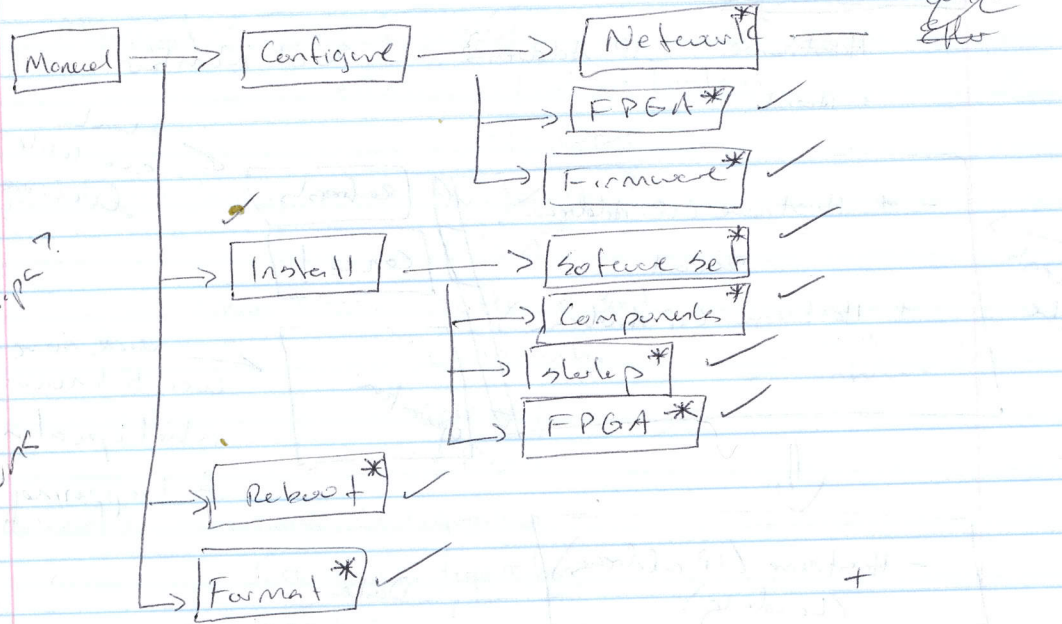 Manual → Configure → Network*
FPGA* ✓
Firmware* ✓
✓
Install → Software Set* ✓
Components* ✓
FPGA* ✓
Reboot* ✓
Format* ✓
+